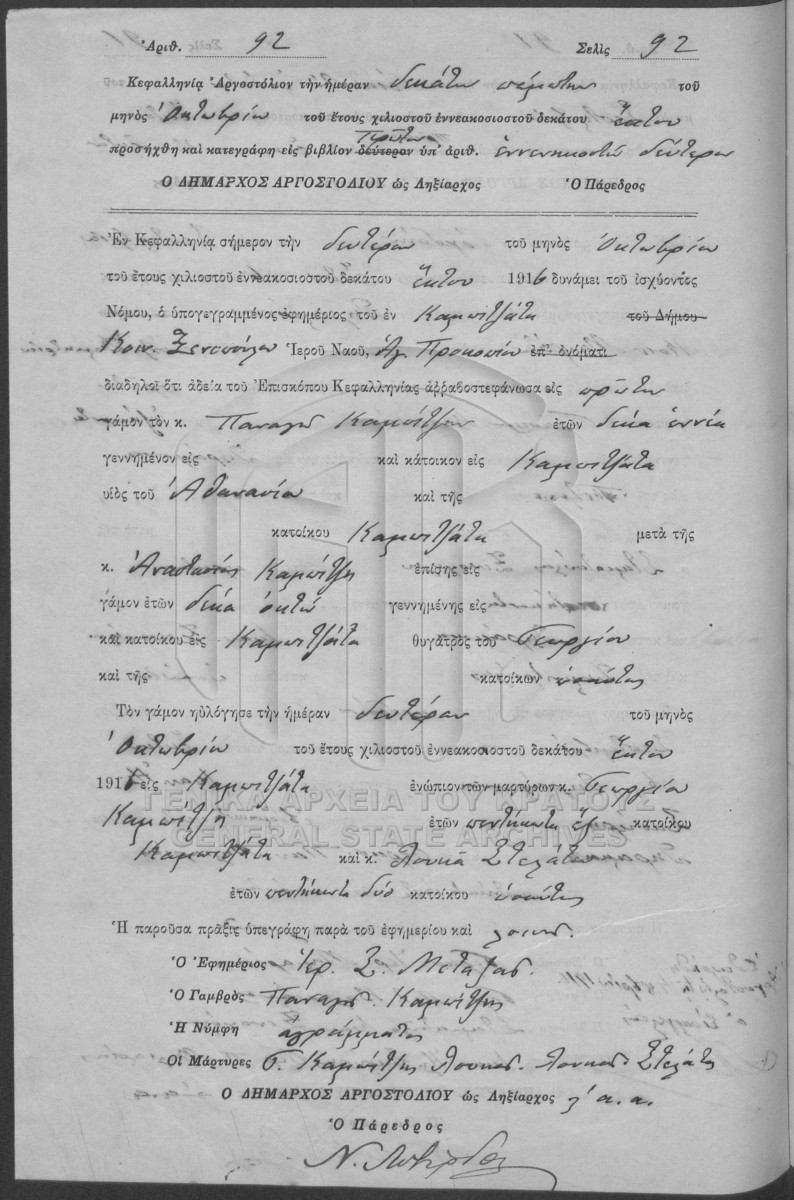 Ἀριθ. 92 Σελὶς 92
Κεφαλληνίᾳ Ἀργοστόλιον τὴν ἡμέραν δεκάτην πέμπτην τοῦ
μηνὸς Ὀκτωβρίου τοῦ ἔτους χιλιοστοῦ ἐννεακοσιοστοῦ δεκάτου ἕκτου
πρῶτον
προσήχθη καὶ κατεγράφη εἰς βιβλίον δεύτερον ὑπ' ἀριθ. ἐννενηκοστὸν δεύτερον
Ο ΔΗΜΑΡΧΟΣ ΑΡΓΟΣΤΟΛΙΟΥ ὡς Ληξίαρχος Ὁ Πάρεδρος
Ἐν Κεφαλληνίᾳ σήμερον τὴν δευτέραν τοῦ μηνὸς Ὀκτωβρίου
τοῦ ἔτους χιλιοστοῦ ἐννεακοσιοστοῦ δεκάτου ἕκτου 1916 δυνάμει τοῦ ἰσχύοντος
Νόμου, ὁ ὑπογεγραμμένος ἐφημέριος τοῦ ἐν Καμπιτζάτα τοῦ Δήμου
Κοιν. Ξενοπούλου Ἱεροῦ Ναοῦ, Ἁγ. Προκοπίου ἐπ' ὀνόματι
διαδηλοῖ ὅτι ἀδείᾳ τοῦ Ἐπισκόπου Κεφαλληνίας ἀρραβοστεφάνωσα εἰς πρῶτον
γάμον τὸν κ. Παναγῆ Καμπίτζην ἐτῶν δέκα ἐννέα
γεννημένον εἰς καὶ κάτοικον εἰς Καμπιτζάτα
υἱὸς τοῦ Ἀθανασίου καὶ τῆς
κατοίκου Καμπιτζάτα μετὰ τῆς
κ. Ἀναστασίας Καμπίτζη ἐπίσης εἰς
γάμον ἐτῶν δέκα ὀκτώ γεννημένης εἰς
καὶ κατοίκου εἰς Καμπιτζάτα θυγατρὸς τοῦ Γεωργίου
καὶ τῆς κατοίκων
Τὸν γάμον ηὐλόγησε τὴν ἡμέραν δευτέραν τοῦ μηνὸς
Ὀκτωβρίου τοῦ ἔτους χιλιοστοῦ ἐννεακοσιοστοῦ δεκάτου ἕκτου
1916 εἰς Καμπιτζάτα ἐνώπιον τῶν μαρτύρων κ. Γεωργίου
ΓΕΝΙΚΑ ΑΡΧΕΙΑ ΤΟΥ ΚΡΑΤΟΥΣ
Καμπίτζη ἐτῶν πεντήκοντα ἓξ κατοίκου
GENERAL STATE ARCHIVES
Καμπιτζάτα καὶ κ. Λουκᾶ Στελάτου
ἐτῶν πεντήκοντα δύο κατοίκου
Ἡ παροῦσα πρᾶξις ὑπεγράφη παρὰ τοῦ ἐφημερίου καὶ λοιπῶν.
Ὁ Ἐφημέριος Ἱερ. Σ. Μεταξᾶς.
Ὁ Γαμβρὸς Παναγῆς Καμπίτζης
Ἡ Νύμφη ἀγράμματος
Οἱ Μάρτυρες Γ. Καμπίτζης Λουκᾶς Στελάτος
Ο ΔΗΜΑΡΧΟΣ ΑΡΓΟΣΤΟΛΙΟΥ ὡς Ληξίαρχος α.α.
Ὁ Πάρεδρος